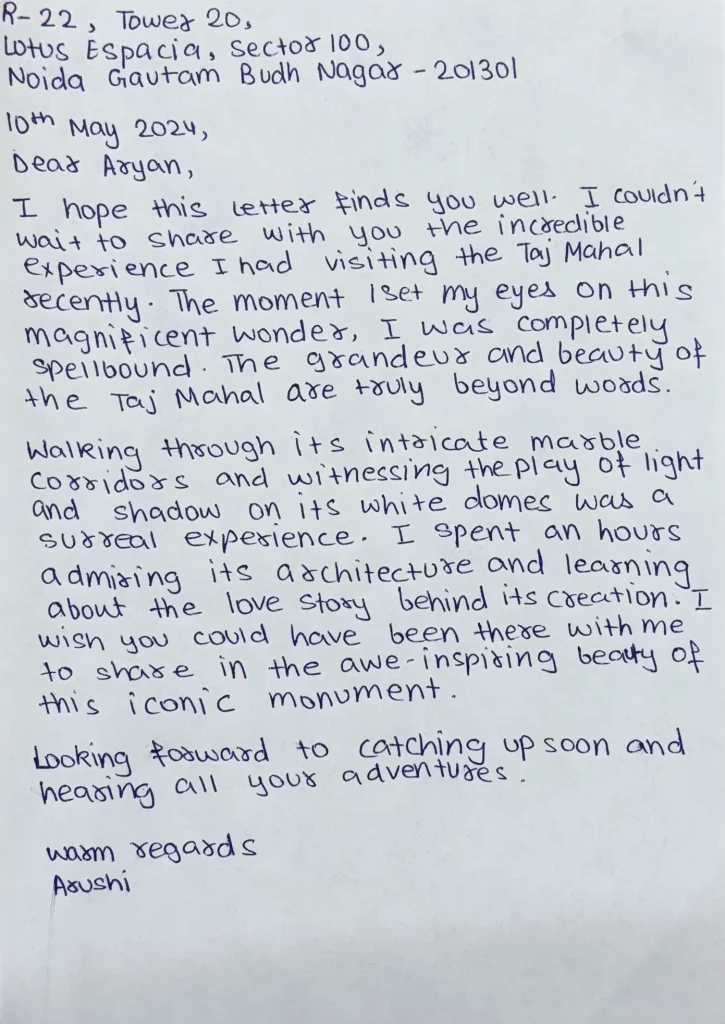 R-22, Tower 20,
Lotus Espacia, Sector 100,
Noida Gautam Budh Nagar - 201301
10th May 2024,
Dear Aryan,
I hope this letter finds you well. I couldn't
wait to share with you the incredible
experience I had visiting the Taj Mahal
recently. The moment I set my eyes on this
magnificent wonder, I was completely
spellbound. The grandeur and beauty of
the Taj Mahal are truly beyond words.
Walking through its intricate marble
corridors and witnessing the play of light
and shadow on its white domes was a
surreal experience. I spent an hours
admiring its architecture and learning
about the love story behind its creation. I
wish you could have been there with me
to share in the awe-inspiring beauty of
this iconic monument.
Looking forward to catching up soon and
hearing all your adventures.
warm regards
Arushi